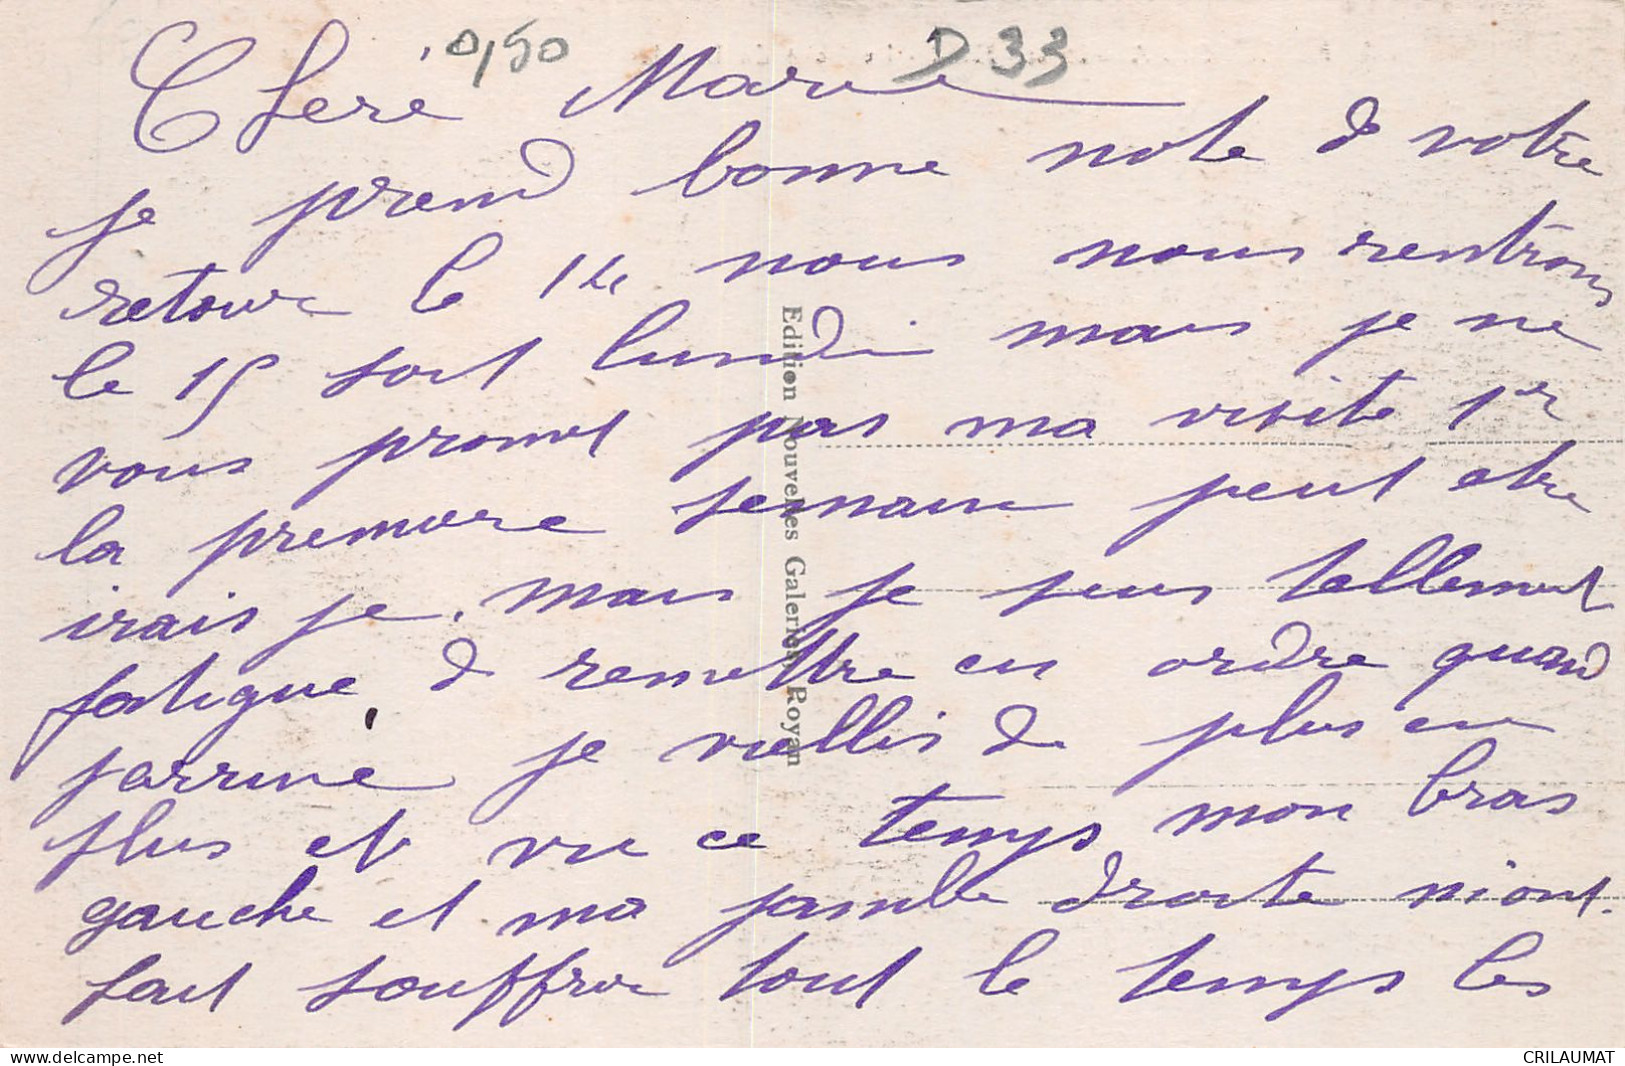 0,50
D 33
Cheré Marie
je prend bonne note de votre
retour le 14 nous nous rentrons
le 15 soit lundi mais je ne
vous promet pas ma visite 1er
la premiere semaine peut etre
irais je, mais je suis tellement
fatigué de remettre en ordre quand
j'arrive je viellis de plus en
plus et vu ce temps mon bras
gauche et ma jambe droite m'ont
fait souffrir tout le temps les
Edition Nouvelles Galeries, Royan
delcampe.net
CRILAUMAT